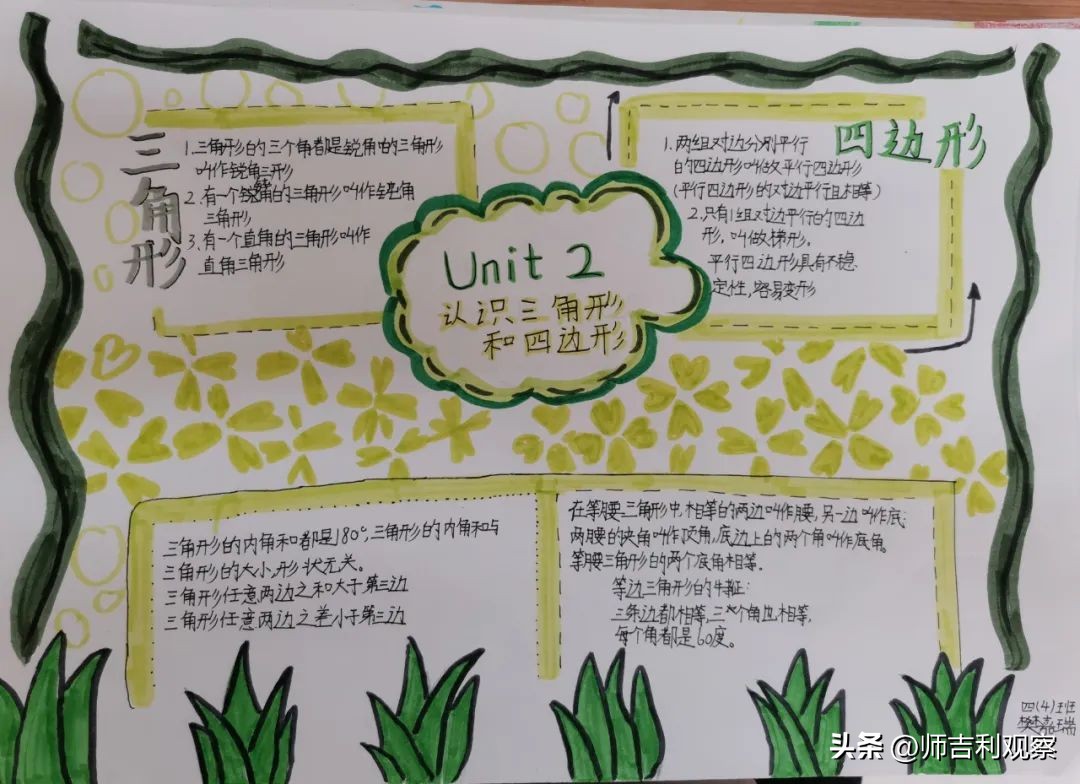 三角形
1.三角形的三个角都是锐角的三角形
叫作锐角三形
2.有一个钝角的三角形叫作钝角
三角形
3.有一个直角的三角形叫作
直角三角形
Unit 2
认识三角形
和四边形
四边形
1.两组对边分别平行
的四边形叫做平行四边形
(平行四边形的对边平行且相等)
2.只有1组对边平行的四边
形,叫做梯形。
平行四边形具有不稳
定性,容易变形
三角形的内角和都是180°,三角形的内角和与
三角形的大小,形状无关。
三角形任意两边之和大于第三边
三角形任意两边之差小于第三边
在等腰三角形中,相等的两边叫作腰,另一边叫作底;
两腰的夹角叫作顶角,底边上的两个角叫作底角。
等腰三角形的两个底角相等。
等边三角形的特征:
三条边都相等,三个角也相等,
每个角都是60度。
四(4)班
樊嘉瑞
头条 @师吉利观察